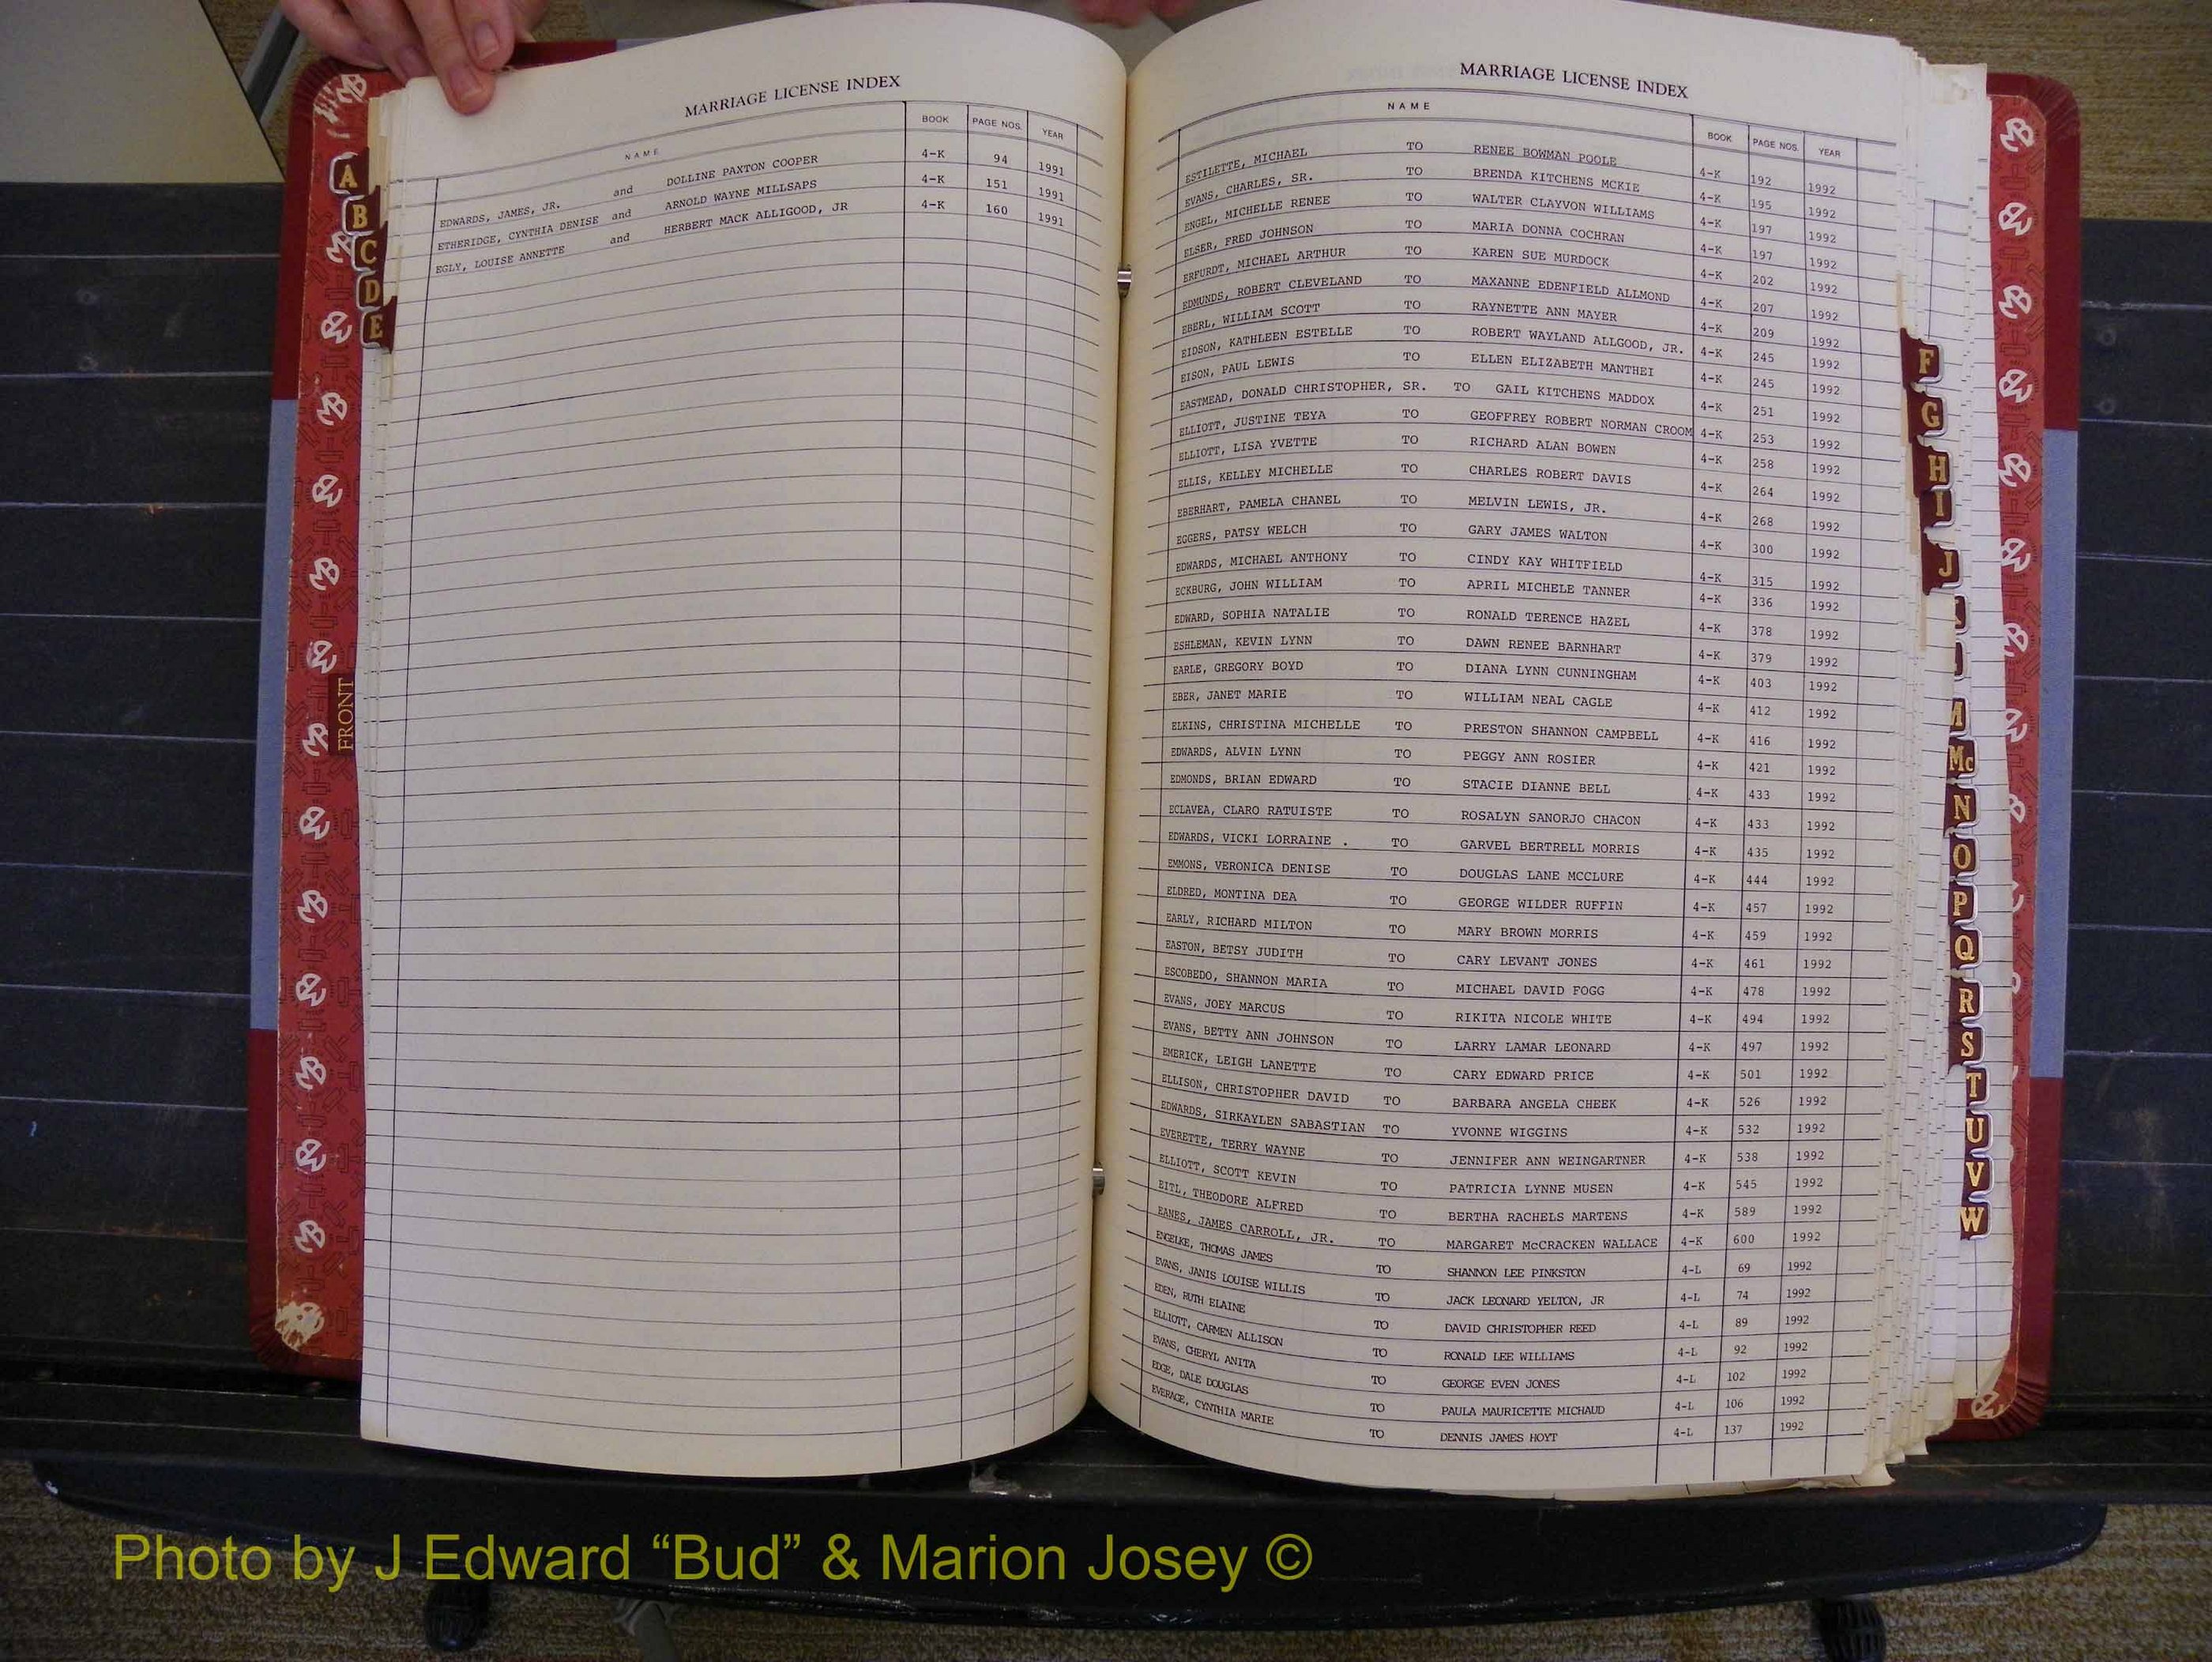 MARRIAGE LICENSE INDEX
NAME BOOK PAGE NOS. YEAR
EDWARDS, JAMES, JR. and DOLLINE PAXTON COOPER 4-K 94 1991
ETHERIDGE, CYNTHIA DENISE and ARNOLD WAYNE MILLSAPS 4-K 151 1991
EGLY, LOUISE ANNETTE and HERBERT MACK ALLIGOOD, JR 4-K 160 1991
A
B
C
D
E
FRONT
MARRIAGE LICENSE INDEX
NAME BOOK PAGE NOS. YEAR
ESTILETTE, MICHAEL TO RENEE BOWMAN POOLE 4-K 192 1992
EVANS, CHARLES, SR. TO BRENDA KITCHENS MCKIE 4-K 195 1992
ENGEL, MICHELLE RENEE TO WALTER CLAYVON WILLIAMS 4-K 197 1992
ELSER, FRED JOHNSON TO MARIA DONNA COCHRAN 4-K 197 1992
ERFURDT, MICHAEL ARTHUR TO KAREN SUE MURDOCK 4-K 202 1992
EDMUNDS, ROBERT CLEVELAND TO MAXANNE EDENFIELD ALLMOND 4-K 207 1992
EBERL, WILLIAM SCOTT TO RAYNETTE ANN MAYER 4-K 209 1992
EIDSON, KATHLEEN ESTELLE TO ROBERT WAYLAND ALLGOOD, JR. 4-K 245 1992
EISON, PAUL LEWIS TO ELLEN ELIZABETH MANTHEI 4-K 245 1992
EASTMEAD, DONALD CHRISTOPHER, SR. TO GAIL KITCHENS MADDOX 4-K 251 1992
ELLIOTT, JUSTINE TEYA TO GEOFFREY ROBERT NORMAN CROOM 4-K 253 1992
ELLIOTT, LISA YVETTE TO RICHARD ALAN BOWEN 4-K 258 1992
ELLIS, KELLEY MICHELLE TO CHARLES ROBERT DAVIS 4-K 264 1992
EBERHART, PAMELA CHANEL TO MELVIN LEWIS, JR. 4-K 268 1992
EGGERS, PATSY WELCH TO GARY JAMES WALTON 4-K 300 1992
EDWARDS, MICHAEL ANTHONY TO CINDY KAY WHITFIELD 4-K 315 1992
ECKBURG, JOHN WILLIAM TO APRIL MICHELE TANNER 4-K 336 1992
EDWARD, SOPHIA NATALIE TO RONALD TERENCE HAZEL 4-K 378 1992
ESHLEMAN, KEVIN LYNN TO DAWN RENEE BARNHART 4-K 379 1992
EARLE, GREGORY BOYD TO DIANA LYNN CUNNINGHAM 4-K 403 1992
EBER, JANET MARIE TO WILLIAM NEAL CAGLE 4-K 412 1992
ELKINS, CHRISTINA MICHELLE TO PRESTON SHANNON CAMPBELL 4-K 416 1992
EDWARDS, ALVIN LYNN TO PEGGY ANN ROSIER 4-K 421 1992
EDMONDS, BRIAN EDWARD TO STACIE DIANNE BELL 4-K 433 1992
ECLAVEA, CLARO RATUISTE TO ROSALYN SANORJO CHACON 4-K 433 1992
EDWARDS, VICKI LORRAINE . TO GARVEL BERTRELL MORRIS 4-K 435 1992
EMMONS, VERONICA DENISE TO DOUGLAS LANE MCCLURE 4-K 444 1992
ELDRED, MONTINA DEA TO GEORGE WILDER RUFFIN 4-K 457 1992
EARLY, RICHARD MILTON TO MARY BROWN MORRIS 4-K 459 1992
EASTON, BETSY JUDITH TO CARY LEVANT JONES 4-K 461 1992
ESCOBEDO, SHANNON MARIA TO MICHAEL DAVID FOGG 4-K 478 1992
EVANS, JOEY MARCUS TO RIKITA NICOLE WHITE 4-K 494 1992
EVANS, BETTY ANN JOHNSON TO LARRY LAMAR LEONARD 4-K 497 1992
EMERICK, LEIGH LANETTE TO CARY EDWARD PRICE 4-K 501 1992
ELLISON, CHRISTOPHER DAVID TO BARBARA ANGELA CHEEK 4-K 526 1992
EDWARDS, SIRKAYLEN SABASTIAN TO YVONNE WIGGINS 4-K 532 1992
EVERETTE, TERRY WAYNE TO JENNIFER ANN WEINGARTNER 4-K 538 1992
ELLIOTT, SCOTT KEVIN TO PATRICIA LYNNE MUSEN 4-K 545 1992
EITL, THEODORE ALFRED TO BERTHA RACHELS MARTENS 4-K 589 1992
EANES, JAMES CARROLL, JR. TO MARGARET McCRACKEN WALLACE 4-K 600 1992
ENGELKE, THOMAS JAMES TO SHANNON LEE PINKSTON 4-L 69 1992
EVANS, JANIS LOUISE WILLIS TO JACK LEONARD YELTON, JR 4-L 74 1992
EDEN, RUTH ELAINE TO DAVID CHRISTOPHER REED 4-L 89 1992
ELLIOTT, CARMEN ALLISON TO RONALD LEE WILLIAMS 4-L 92 1992
EVANS, CHERYL ANITA TO GEORGE EVEN JONES 4-L 102 1992
EDGE, DALE DOUGLAS TO PAULA MAURICETTE MICHAUD 4-L 106 1992
EVERAGE, CYNTHIA MARIE TO DENNIS JAMES HOYT 4-L 137 1992
F
G
H
I
J
M
Mc
N
O
P
Q
R
S
T
U
V
W
Photo by J Edward “Bud” & Marion Josey ©